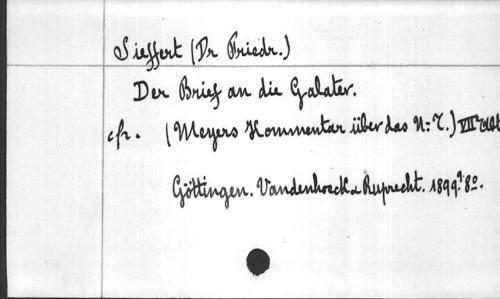 Sieffert (Dr Friedr.)
Der Brief an die Galater.
cfr. (Meyers Kommentar über das N: T.) VII
Göttingen. Vandenhoeck & Ruprecht. 1899. 8º.